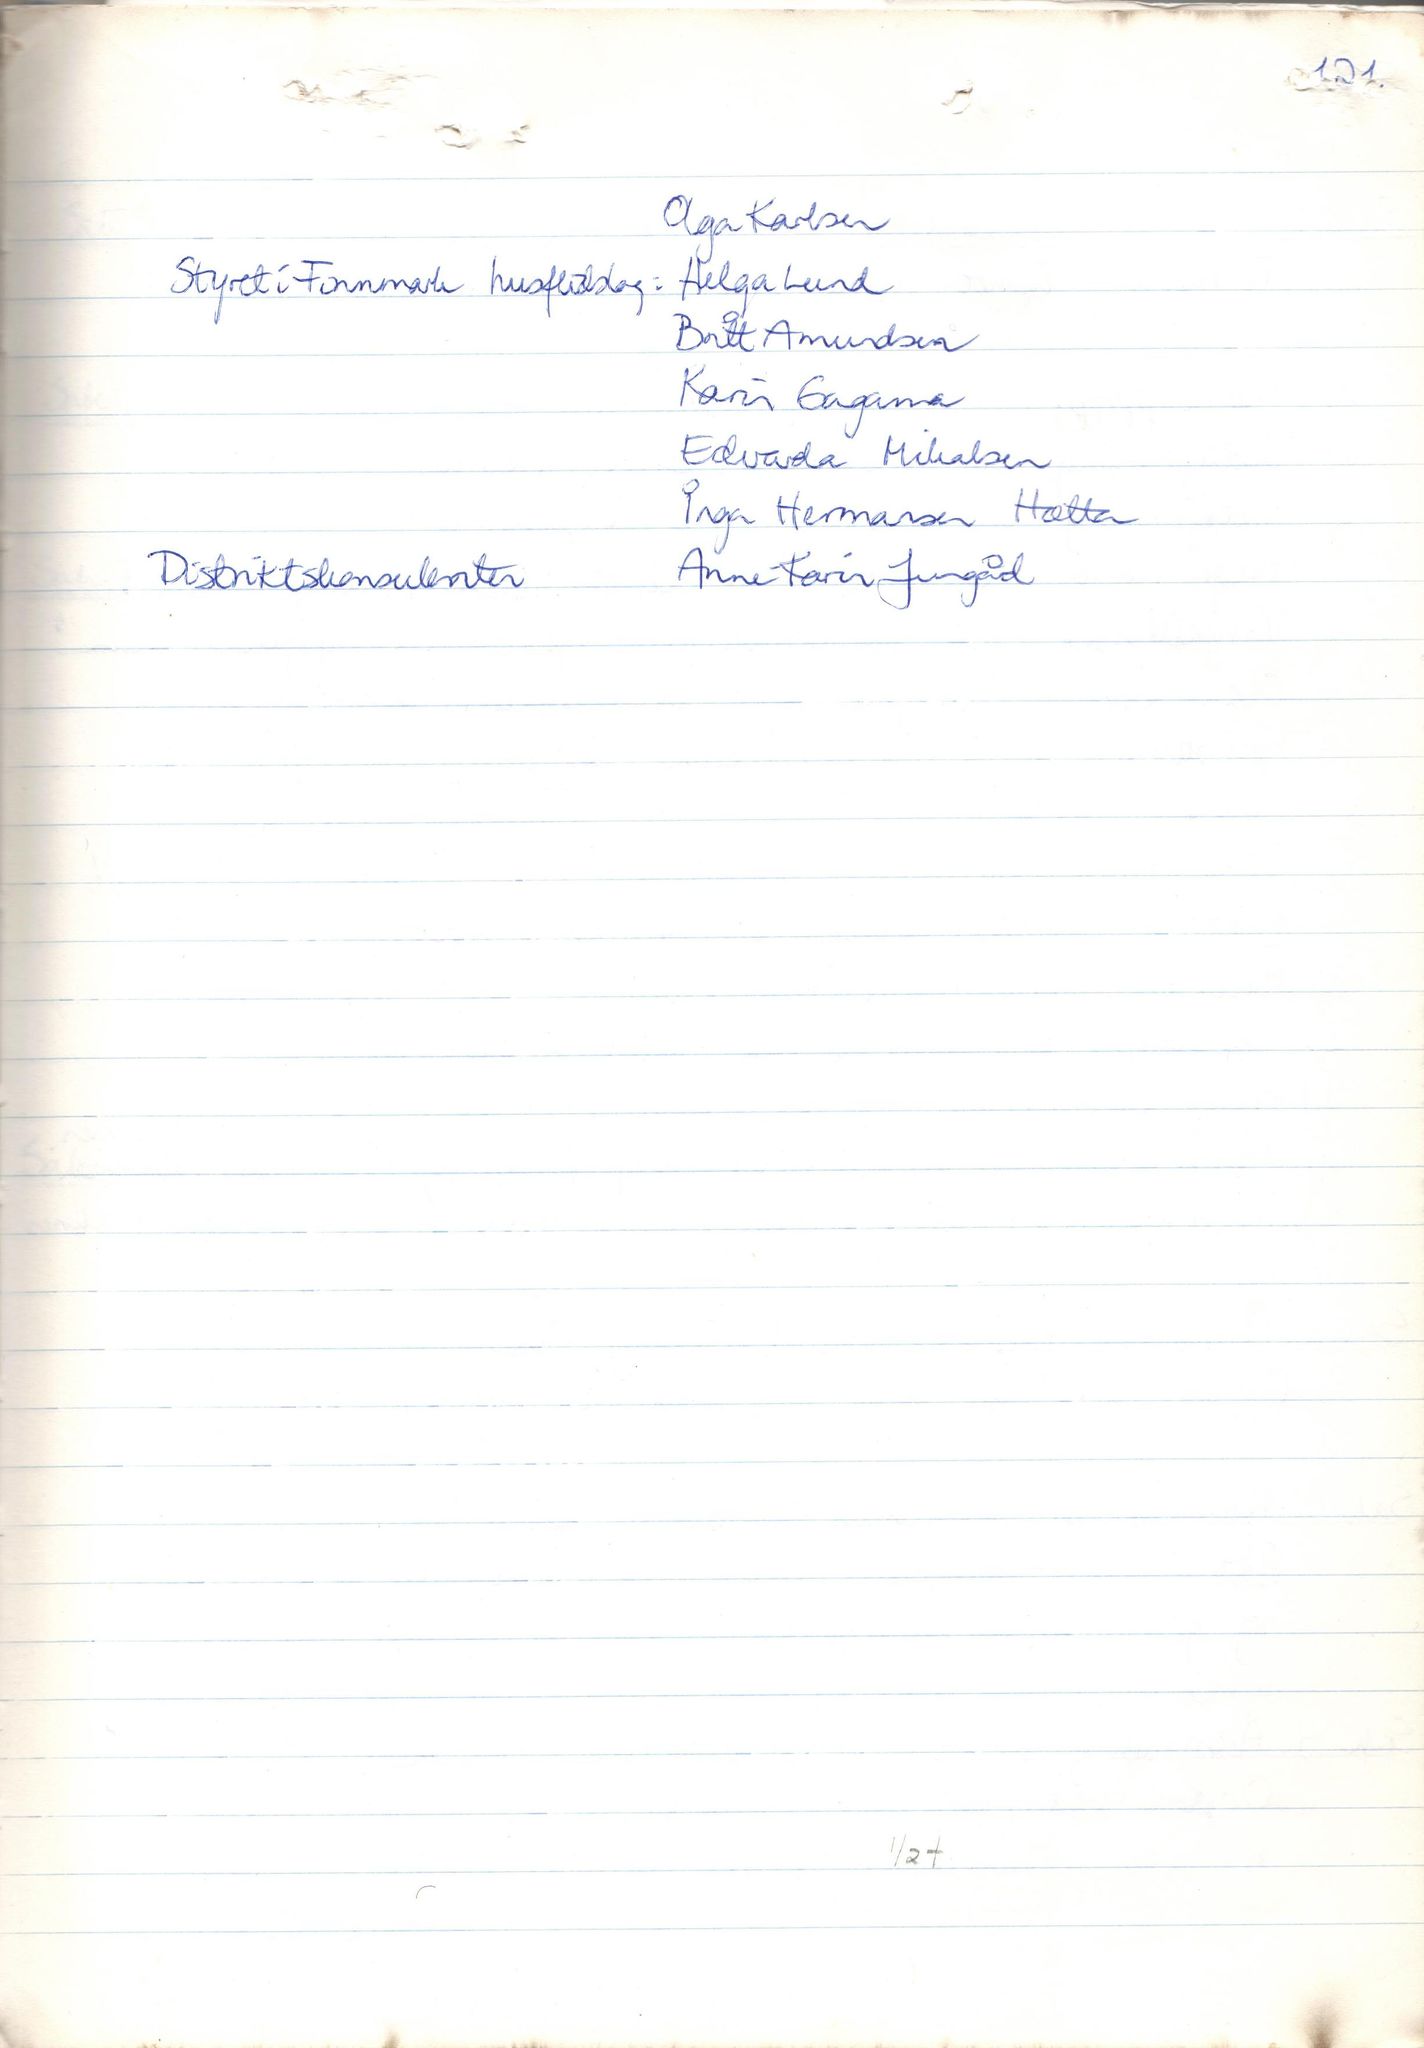 121.
Olga Karlsen
Styret i Finnmark husflidslag: Helga Lund
Britt Amundsen
Karin Gagama
Edvarda Mikalsen
Inga Hermansen Hætta
Distriktskonsulenten Anne-Karin Jungård
1/2t